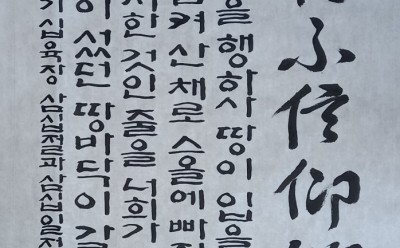 不信仰
을 행하사 땅이 입을
켜 산 채로 스올에 빠
한 것인 줄을 너희가
이 섰던 땅바닥이 갈
기 십육장 삼십절과 삼십일절